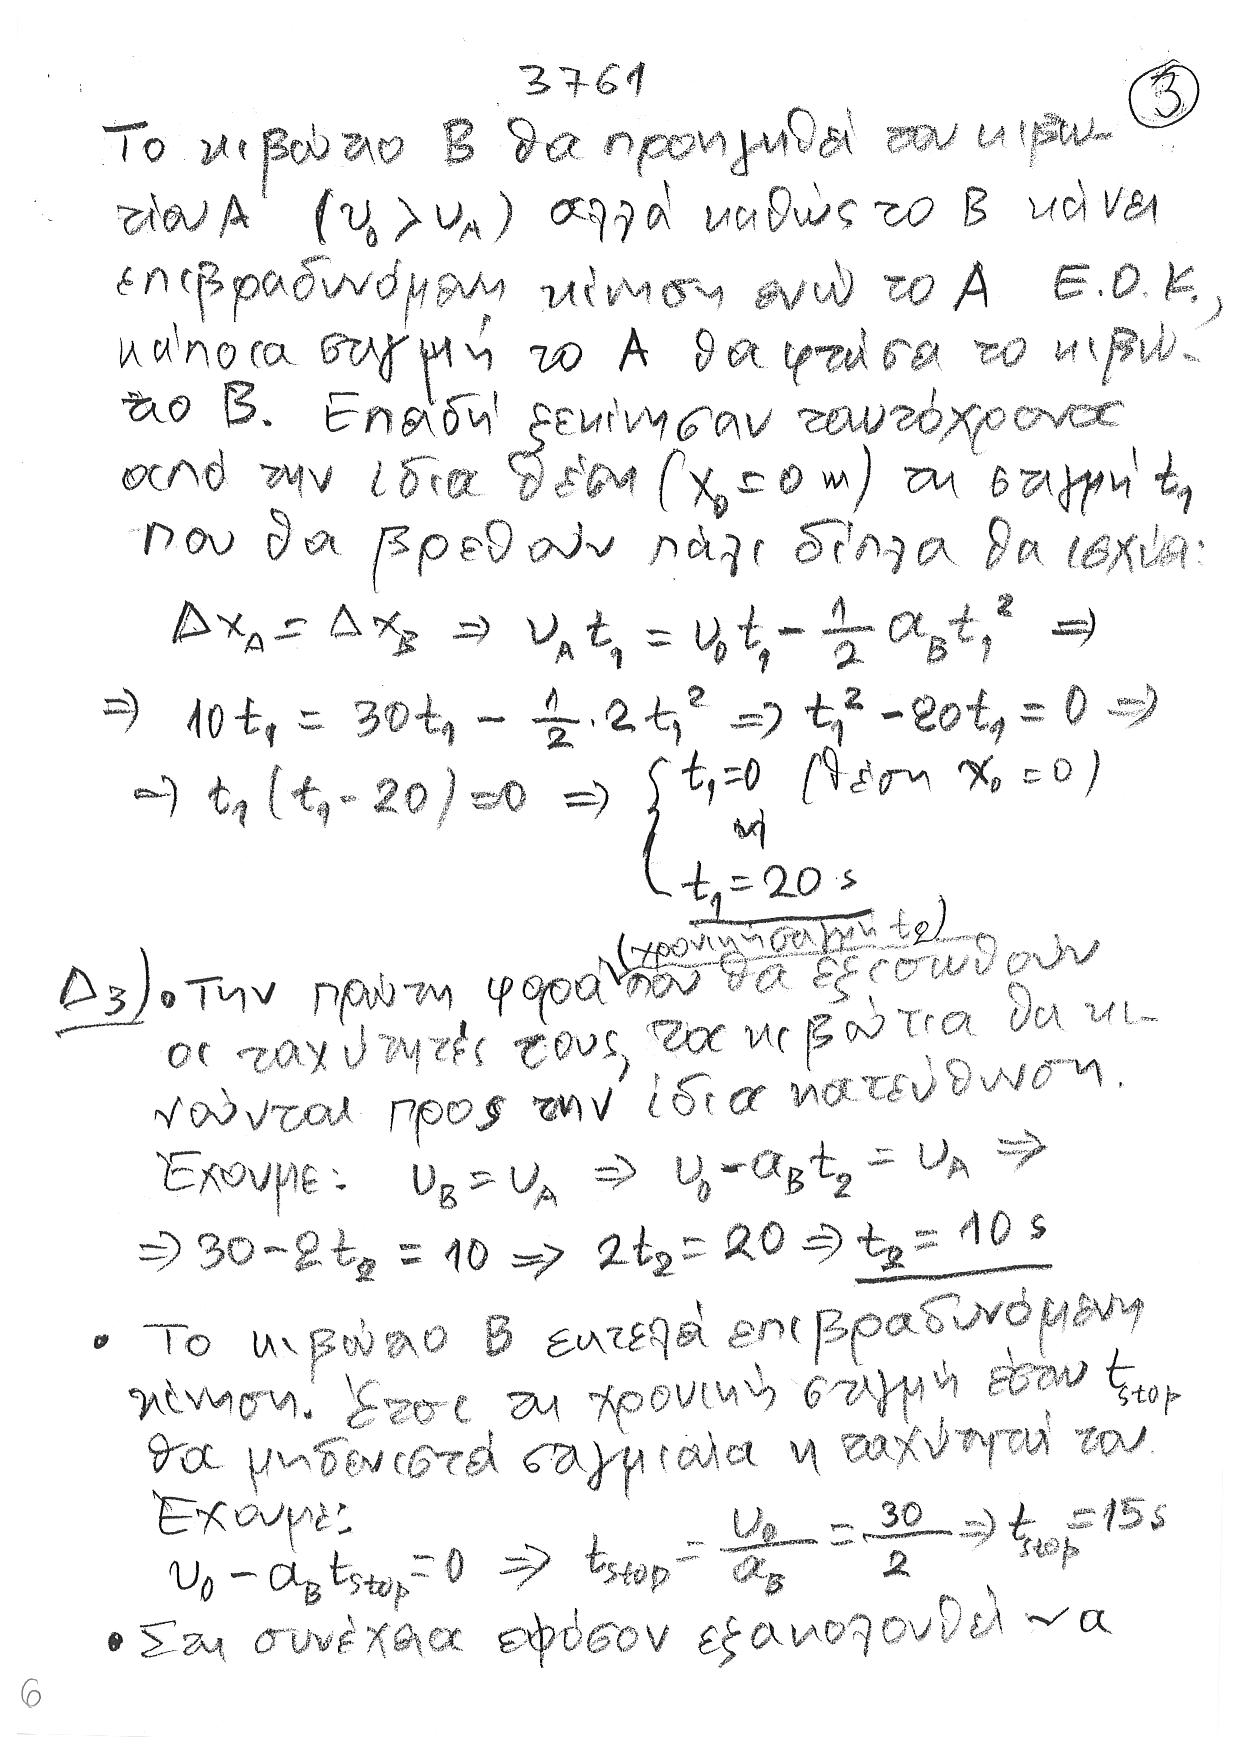 3761
3
Το κιβώτιο Β θα προηγηθεί του κιβω-
τίου Α (υ₀ > υ_A) αλλά καθώς το Β κάνει
επιβραδυνόμενη κίνηση ενώ το Α Ε.Ο.Κ.,
κάποια στιγμή το Α θα φτάσει το κιβώ-
τιο Β. Επειδή ξεκίνησαν ταυτόχρονα
από την ίδια θέση (x₀ = 0 m) τη στιγμή t₁
που θα βρεθούν πάλι δίπλα θα ισχύει:
Δx_A = Δx_B ⇒ υ_A t₁ = υ₀ t₁ - 1/2 α_B t₁² ⇒
⇒ 10t₁ = 30t₁ - 1/2 · 2 t₁² ⇒ t₁² - 20t₁ = 0 ⇒
⇒ t₁ (t₁ - 20) = 0 ⇒ { t₁ = 0 (θέση x₀ = 0)
ή
t₁ = 20 s
(χρονική στιγμή t₂)
Δ3) • Την πρώτη φορά που θα εξισωθούν
οι ταχύτητές τους, τα κιβώτια θα κι-
νούνται προς την ίδια κατεύθυνση.
Έχουμε: υ_B = υ_A ⇒ υ₀ - α_B t₂ = υ_A ⇒
⇒ 30 - 2t₂ = 10 ⇒ 2t₂ = 20 ⇒ t₂ = 10 s
• Το κιβώτιο Β εκτελεί επιβραδυνόμενη
κίνηση. Έτσι τη χρονική στιγμή έστω t_stop
θα μηδενιστεί στιγμιαία η ταχύτητά του.
Έχουμε:
υ₀ - α_B t_stop = 0 ⇒ t_stop = υ₀/α_B = 30/2 ⇒ t_stop = 15 s
• Στη συνέχεια εφόσον εξακολουθεί να
6